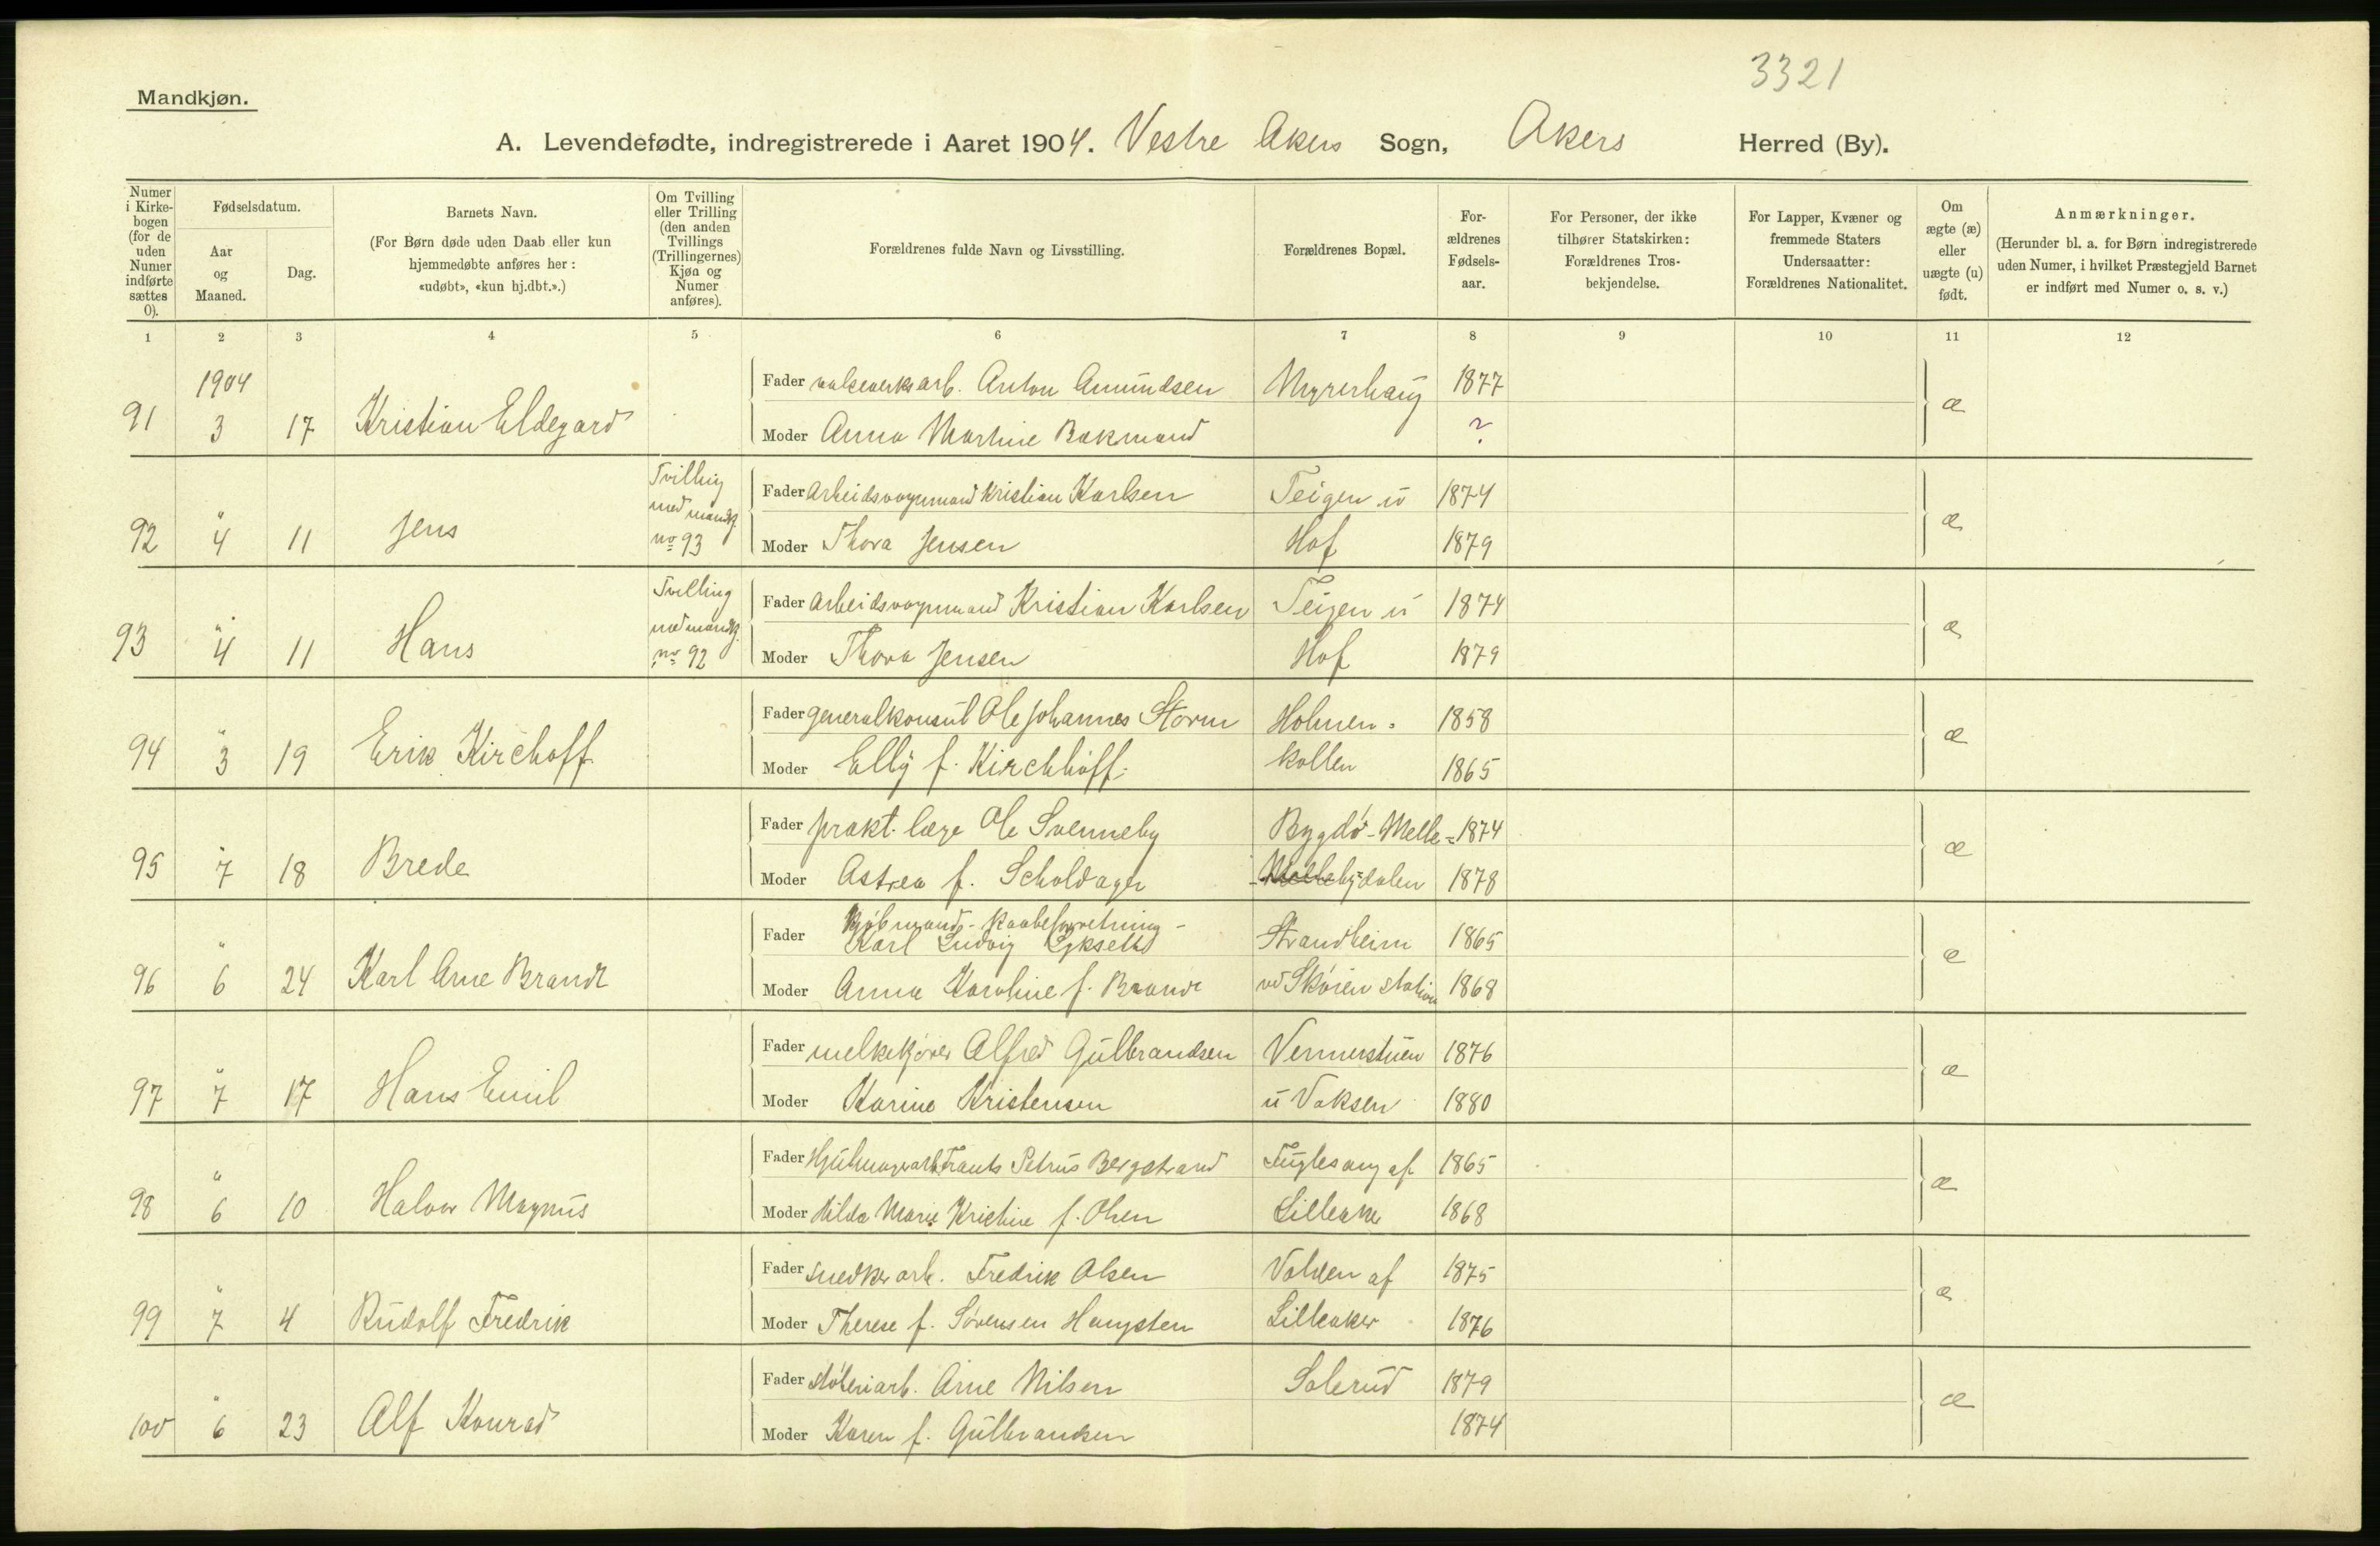 3321
Mandkjøn.
A. Levendefødte, indregistrerede i Aaret 1904. Vestre Akers Sogn, Akers Herred (By).
Numer i Kirkebogen (for de uden Numer indførte sættes 0).
Fødselsdatum.
Aar og Maaned.
Dag.
Barnets Navn.
(For Børn døde uden Daab eller kun hjemmedøbte anføres her: «udøbt», «kun hj.dbt.».)
Om Tvilling eller Trilling (den anden Tvillings (Trillingernes) Kjøn og Numer anføres).
Forældrenes fulde Navn og Livsstilling.
Forældrenes Bopæl.
Forældrenes Fødselsaar.
For Personer, der ikke tilhører Statskirken: Forældrenes Trosbekjendelse.
For Lapper, Kvæner og fremmede Staters Undersaatter: Forældrenes Nationalitet.
Om ægte (æ) eller uægte (u) født.
Anmærkninger.
(Herunder bl. a. for Børn indregistrerede uden Numer, i hvilket Præstegjeld Barnet er indført med Numer o. s. v.)
1 2 3 4 5 6 7 8 9 10 11 12
1904
Fader valseverksarb. Anton Amundsen Myrerhaug 1877
91 3 17 Kristian Eldegard æ
Moder Anna Martine Bakmand ?
Tvilling med mandkj. no 93
Fader Arbeidsvognmand Kristian Karlsen Teigen u 1874
92 " 4 11 Jens æ
Moder Thora Jensen Hof 1879
Tvilling med mandkj. no 92
Fader Arbeidsvognmand Kristian Karlsen Teigen u 1874
93 " 4 11 Hans æ
Moder Thora Jensen Hof 1879
Fader generalkonsul Ole Johannes Storm Holmen- 1858
94 " 3 19 Erik Kirchoff æ
Moder Elly f. Kirchhoff kollen 1865
Fader prakt. læge Ole Svenneby Bygdø - Melle- 1874
95 " 7 18 Brede æ
Moder Astrea f. Scholdager bydalen 1878
Kjøbmand - Kaabeforretning -
Fader Karl Ludvig Strandheim 1865
96 " 6 24 Karl Arne Brandt æ
Moder Anna Karoline f. Brandt vd Skøien station 1868
Fader melkekjører Alfred Gulbrandsen Vennerstuen 1876
97 " 7 17 Hans Emil æ
Moder Karine Kristensen u Voksen 1880
Fader Frants Petrus Bergstrand Fuglesang af 1865
98 " 6 10 Halvor Magnus æ
Moder Hilda Marie Kristine f. Olsen Lilleaker 1868
Fader snedkerarb. Fredrik Olsen Volden af 1875
99 " 7 4 Rudolf Fredrik æ
Moder Therese f. Sørensen Haugsten Lilleaker 1876
Fader støberiarb. Arne Nilsen Solerud 1879
100 " 6 23 Alf Konrad æ
Moder Karen f. Gulbrandsen 1874